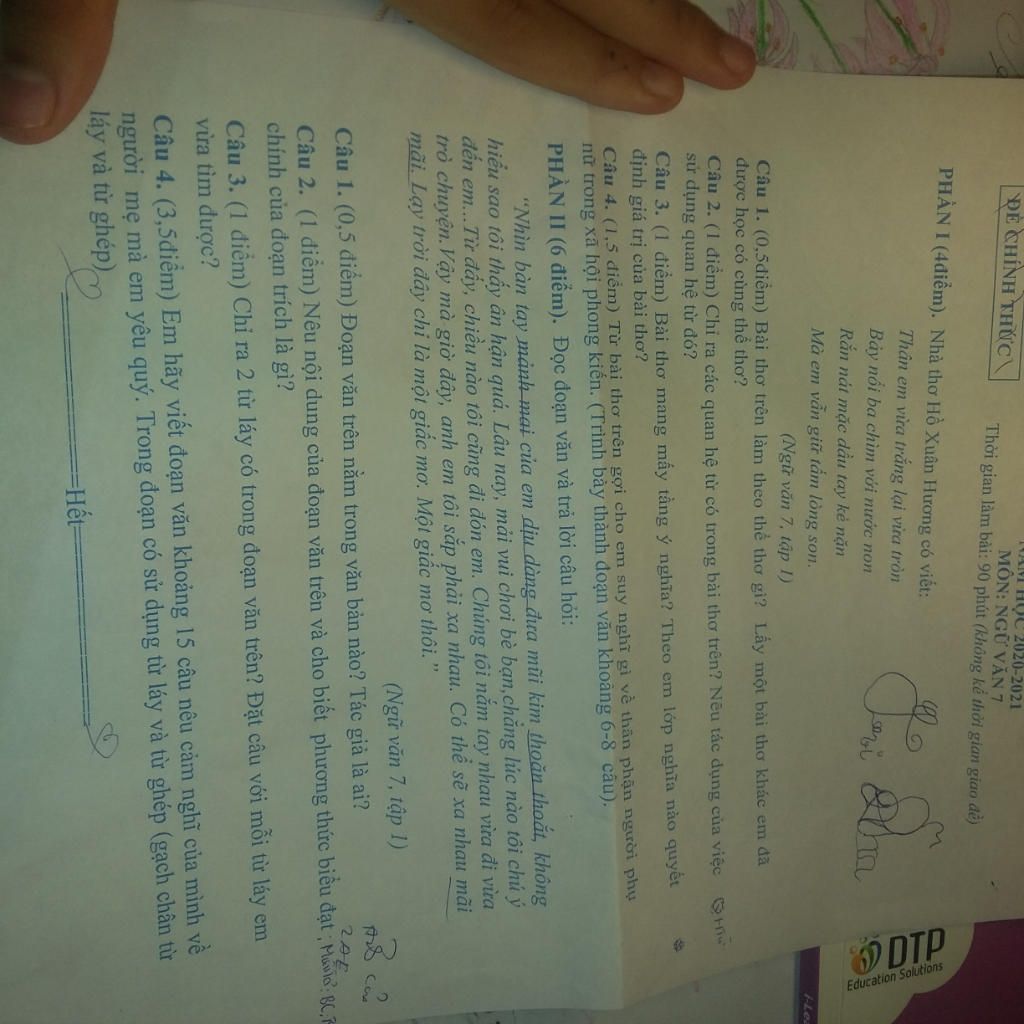 ĐỀ CHÍNH THỨC
NĂM HỌC 2020-2021
MÔN: NGỮ VĂN 7
Thời gian làm bài: 90 phút (không kể thời gian giao đề)
PHẦN I (4điểm). Nhà thơ Hồ Xuân Hương có viết:
Thân em vừa trắng lại vừa tròn
Bảy nổi ba chìm với nước non
Rắn nát mặc dầu tay kẻ nặn
Mà em vẫn giữ tấm lòng son.
(Ngữ văn 7, tập 1)
Câu 1. (0,5điểm) Bài thơ trên làm theo thể thơ gì? Lấy một bài thơ khác em đã
được học có cùng thể thơ?
Câu 2. (1 điểm) Chỉ ra các quan hệ từ có trong bài thơ trên? Nêu tác dụng của việc
sử dụng quan hệ từ đó?
Câu 3. (1 điểm) Bài thơ mang mấy tầng ý nghĩa? Theo em lớp nghĩa nào quyết
định giá trị của bài thơ?
Câu 4. (1,5 điểm) Từ bài thơ trên gợi cho em suy nghĩ gì về thân phận người phụ
nữ trong xã hội phong kiến. (Trình bày thành đoạn văn khoảng 6-8 câu).
PHẦN II (6 điểm). Đọc đoạn văn và trả lời câu hỏi:
“Nhìn bàn tay mảnh mai của em dịu dàng đưa mũi kim thoăn thoắt, không
hiểu sao tôi thấy ân hận quá. Lâu nay, mải vui chơi bè bạn,chẳng lúc nào tôi chú ý
đến em...Từ đấy, chiều nào tôi cũng đi đón em. Chúng tôi nắm tay nhau vừa đi vừa
trò chuyện.Vậy mà giờ đây, anh em tôi sắp phải xa nhau. Có thể sẽ xa nhau mãi
mãi. Lạy trời đây chỉ là một giấc mơ. Một giấc mơ thôi.”
(Ngữ văn 7, tập 1)
Câu 1. (0,5 điểm) Đoạn văn trên nằm trong văn bản nào? Tác giả là ai?
Câu 2. (1 điểm) Nêu nội dung của đoạn văn trên và cho biết phương thức biểu đạt
chính của đoạn trích là gì?
Câu 3. (1 điểm) Chỉ ra 2 từ láy có trong đoạn văn trên? Đặt câu với mỗi từ láy em
vừa tìm được?
Câu 4. (3,5điểm) Em hãy viết đoạn văn khoảng 15 câu nêu cảm nghĩ của mình về
người mẹ mà em yêu quý. Trong đoạn có sử dụng từ láy và từ ghép (gạch chân từ
láy và từ ghép)
Hết
DTP
Education Solutions